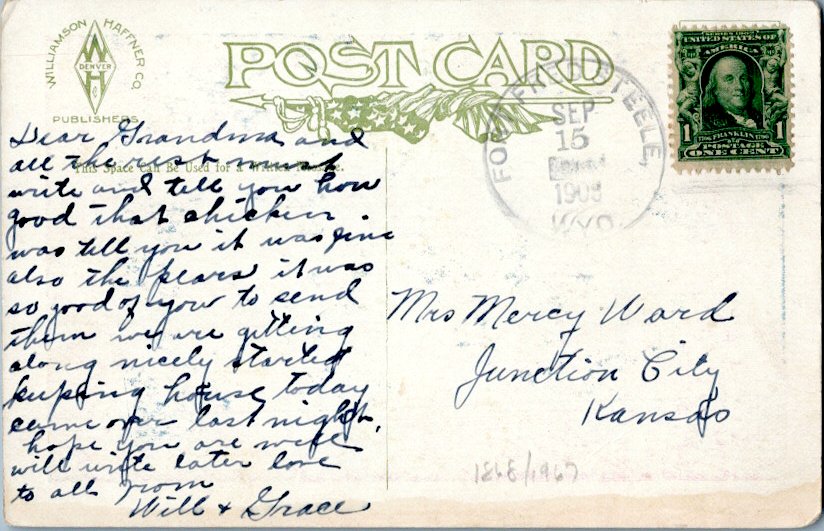 WILLIAMSON HAFFNER CO.
W
DENVER
H
PUBLISHERS
POST CARD
This Space Can Be Used for a Written Message.
FORT FRED STEELE,
SEP
15
1908
WYO.
SERIES 1902
UNITED STATES OF
AMERICA
1 1706 FRANKLIN 1790 1
POSTAGE
ONE CENT
Dear Grandma and
all the rest must
write and tell you how
good that chicken
was tell you it was fine
also the pears it was
so good of you to send
them we are getting
along nicely started
keeping house today
came over last night,
hope you are well
will write later love
to all from
Will & Grace
Mrs Mercy Ward
Junction City
Kansas
1268/1967